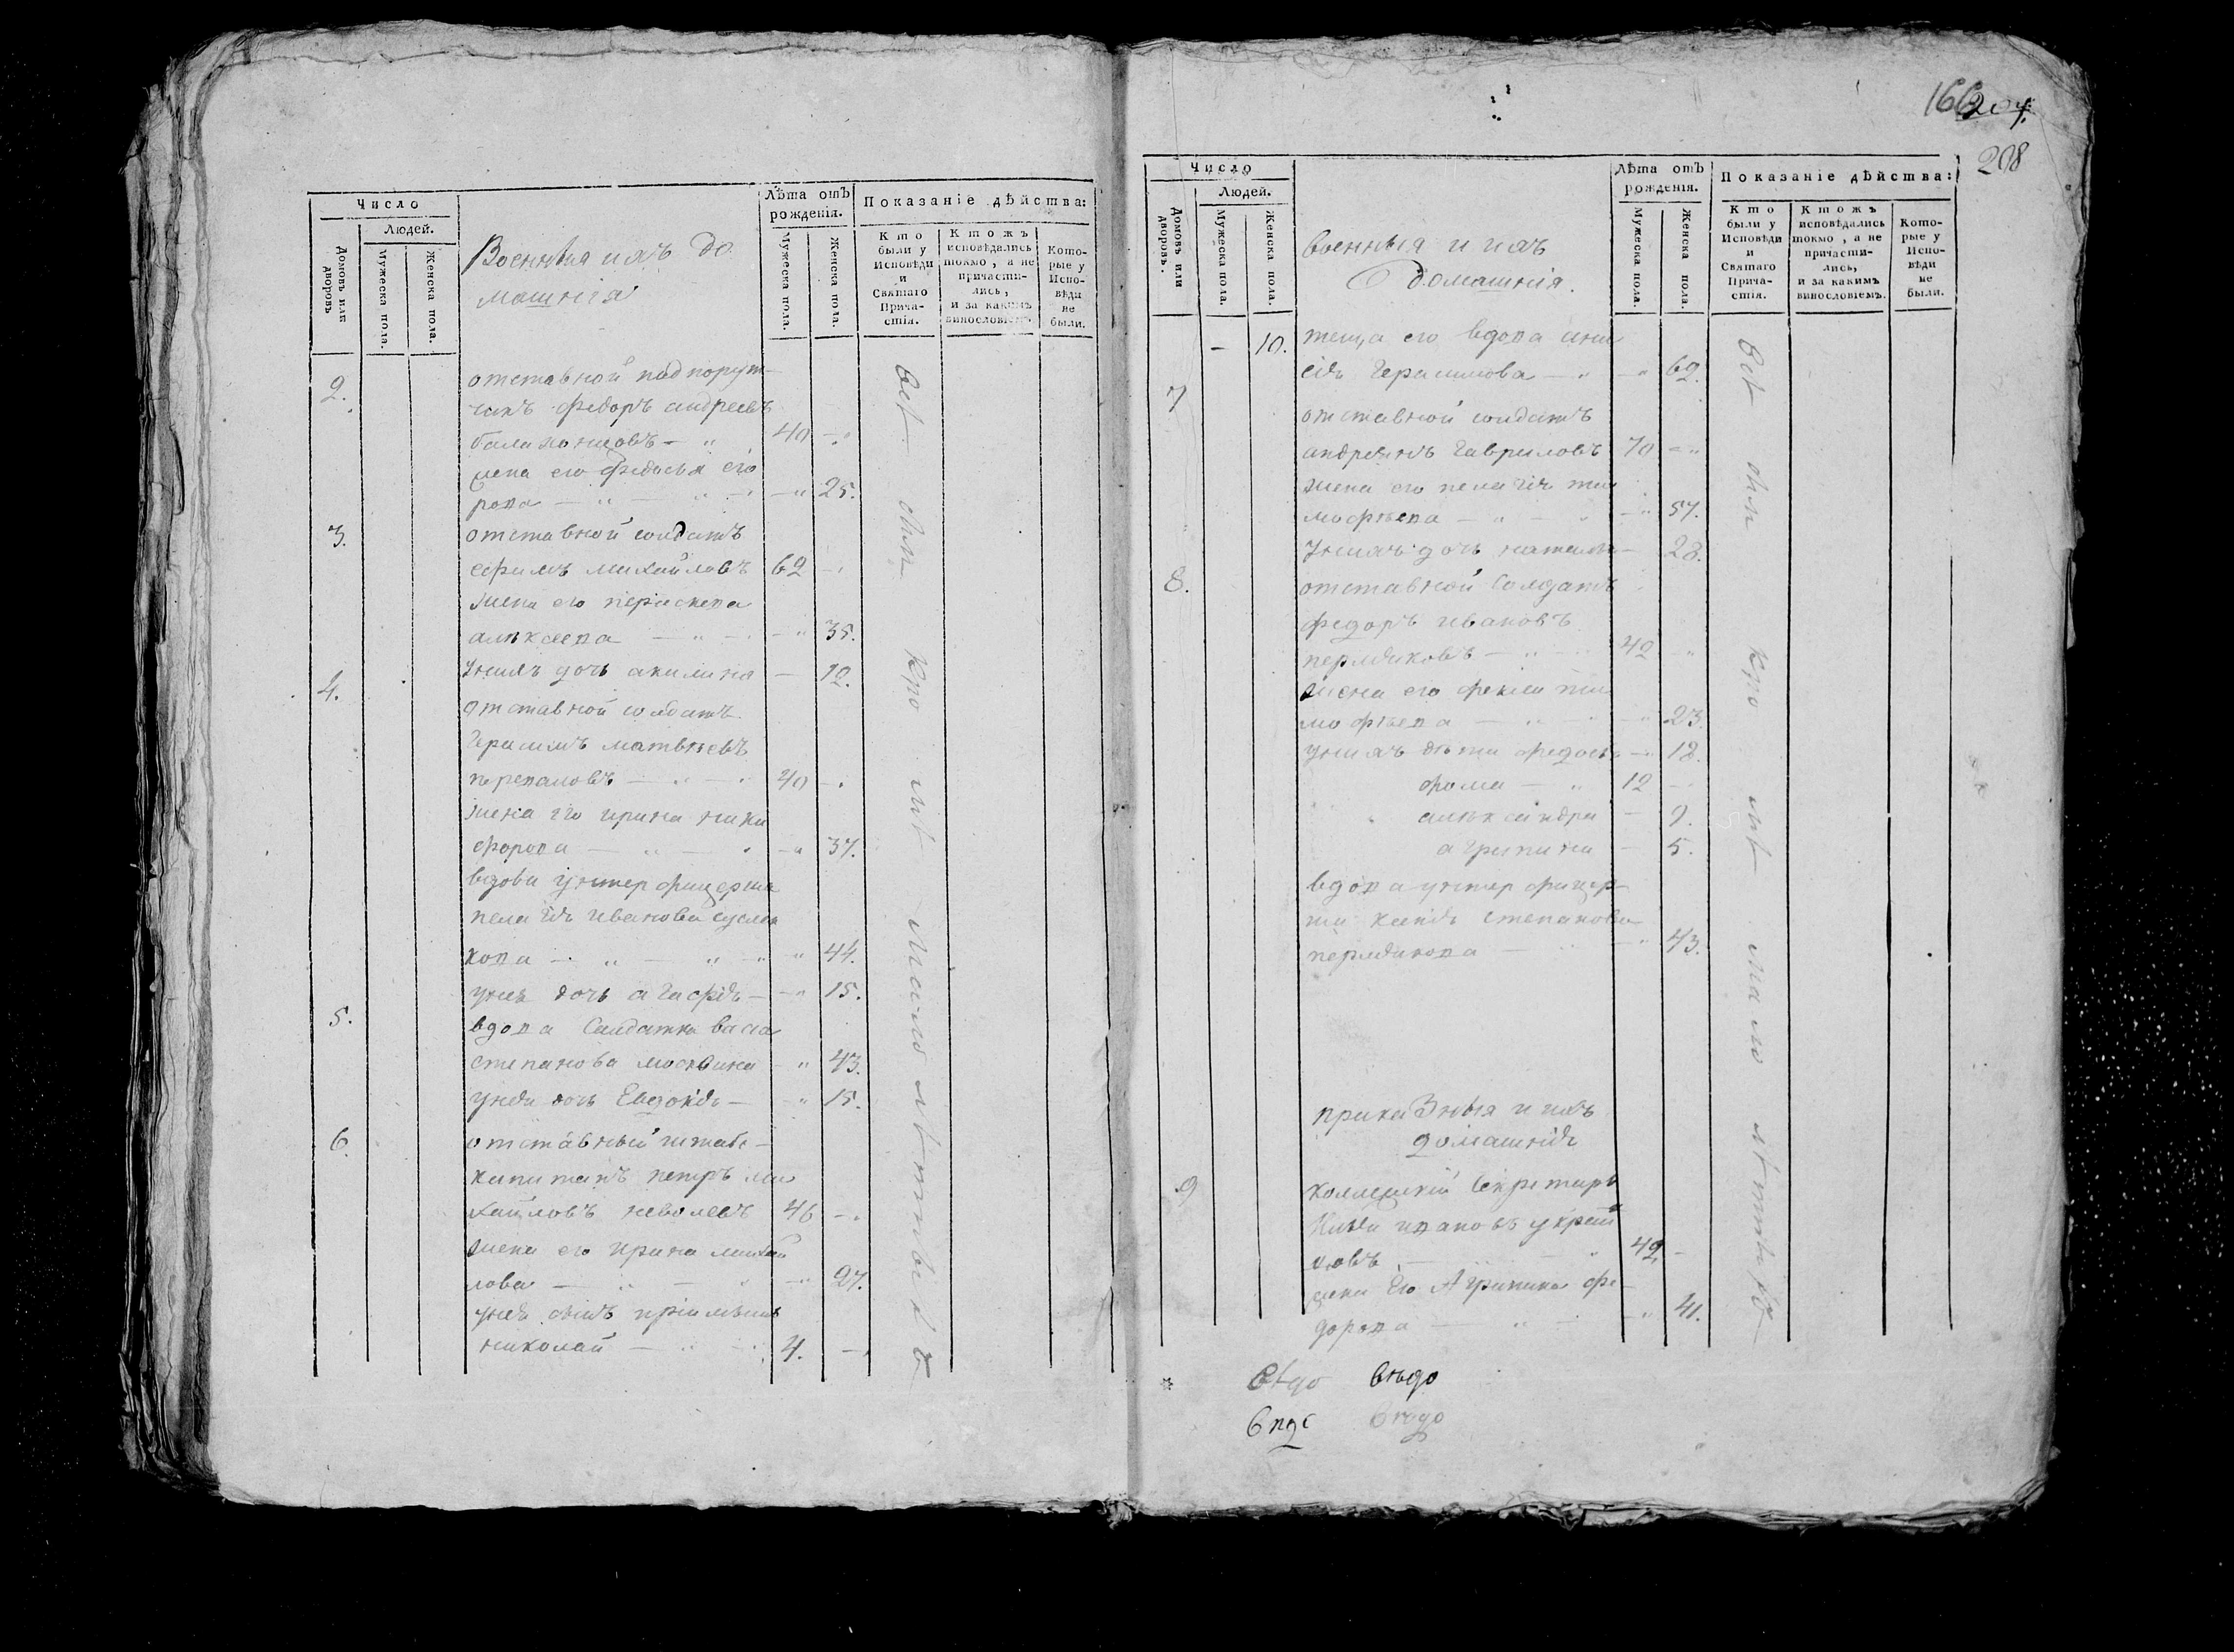 Число
Людей.
Домовъ или дворовъ
Мужеска пола.
Женска пола.
Военныя ихъ до
машнія
Лѣта отъ рожденія.
Мужеска пола.
Женска пола.
Показаніе дѣйства:
Кто были у Исповѣди и Святаго Прича-стія.
Ктожъ исповѣдались токмо, а не причасти-лись, и за какимъ винословіемъ.
Кото-рые у Испо-вѣди не были.
2. отставной подпорут
чикъ федоръ андреевъ
40
жена его федосья его
рова 25.
3. отставной солдатъ
ефимъ михайловъ 62
жена его параскева
алѣксеева 35.
унихъ дочь акилина 12.
4. отставной солдатъ
Герасимъ матвѣевъ
перепаловъ 40
жена его ирина ники
форова 37.
вдова унтер фицерша
пелагія иванова
кова 44.
унея дочь агафія 15.
5. вдова Салдатка васса
степанова москвина 43.
унея дочь Евдокія 15.
6. отставный штабс
капитанъ петръ ми
хайловъ неволевъ 46
жена его ирина михай
лова 27.
унея сынъ
николай 4.
Всѣ они кромѣ малолѣтныхъ
166 204.
208
Число
Людей.
Домовъ или дворовъ.
Мужеска пола.
Женска пола.
военныя и ихъ
домашнія.
Лѣта отъ рожденія.
Мужеска пола.
Женска пола.
Показаніе дѣйства:
Кто были у Исповѣди и Святаго Прича-стія.
Ктожъ исповѣдались токмо, а не причасти-лись, и за какимъ винословіемъ.
Кото-рые у Испо-вѣди не были.
10. теща его вдова ани
сія Герасимова 62.
7 отставной солдатъ
андреянъ Гавриловъ 70
жена его пелагія ти
мофѣева 57.
Унихъ дочь наталия 28.
8. отставной Солдатъ
федоръ ивановъ
пермяковъ 42
жена его фекла ти
мофѣева 23.
унихъ дѣти федосья 12.
фома 12
алѣксандра 9.
агрипина 5.
вдова унтер фицер
ша степанова
пермякова 43.
приказныя и ихъ
домашнія
9 коллежскій секретарь
Илья ивановъ
ковъ 42
жена Его Агрипина фе
дорова 41.
Всѣ они кромѣ малолѣтныхъ
вѣдо вѣдо
вѣдо